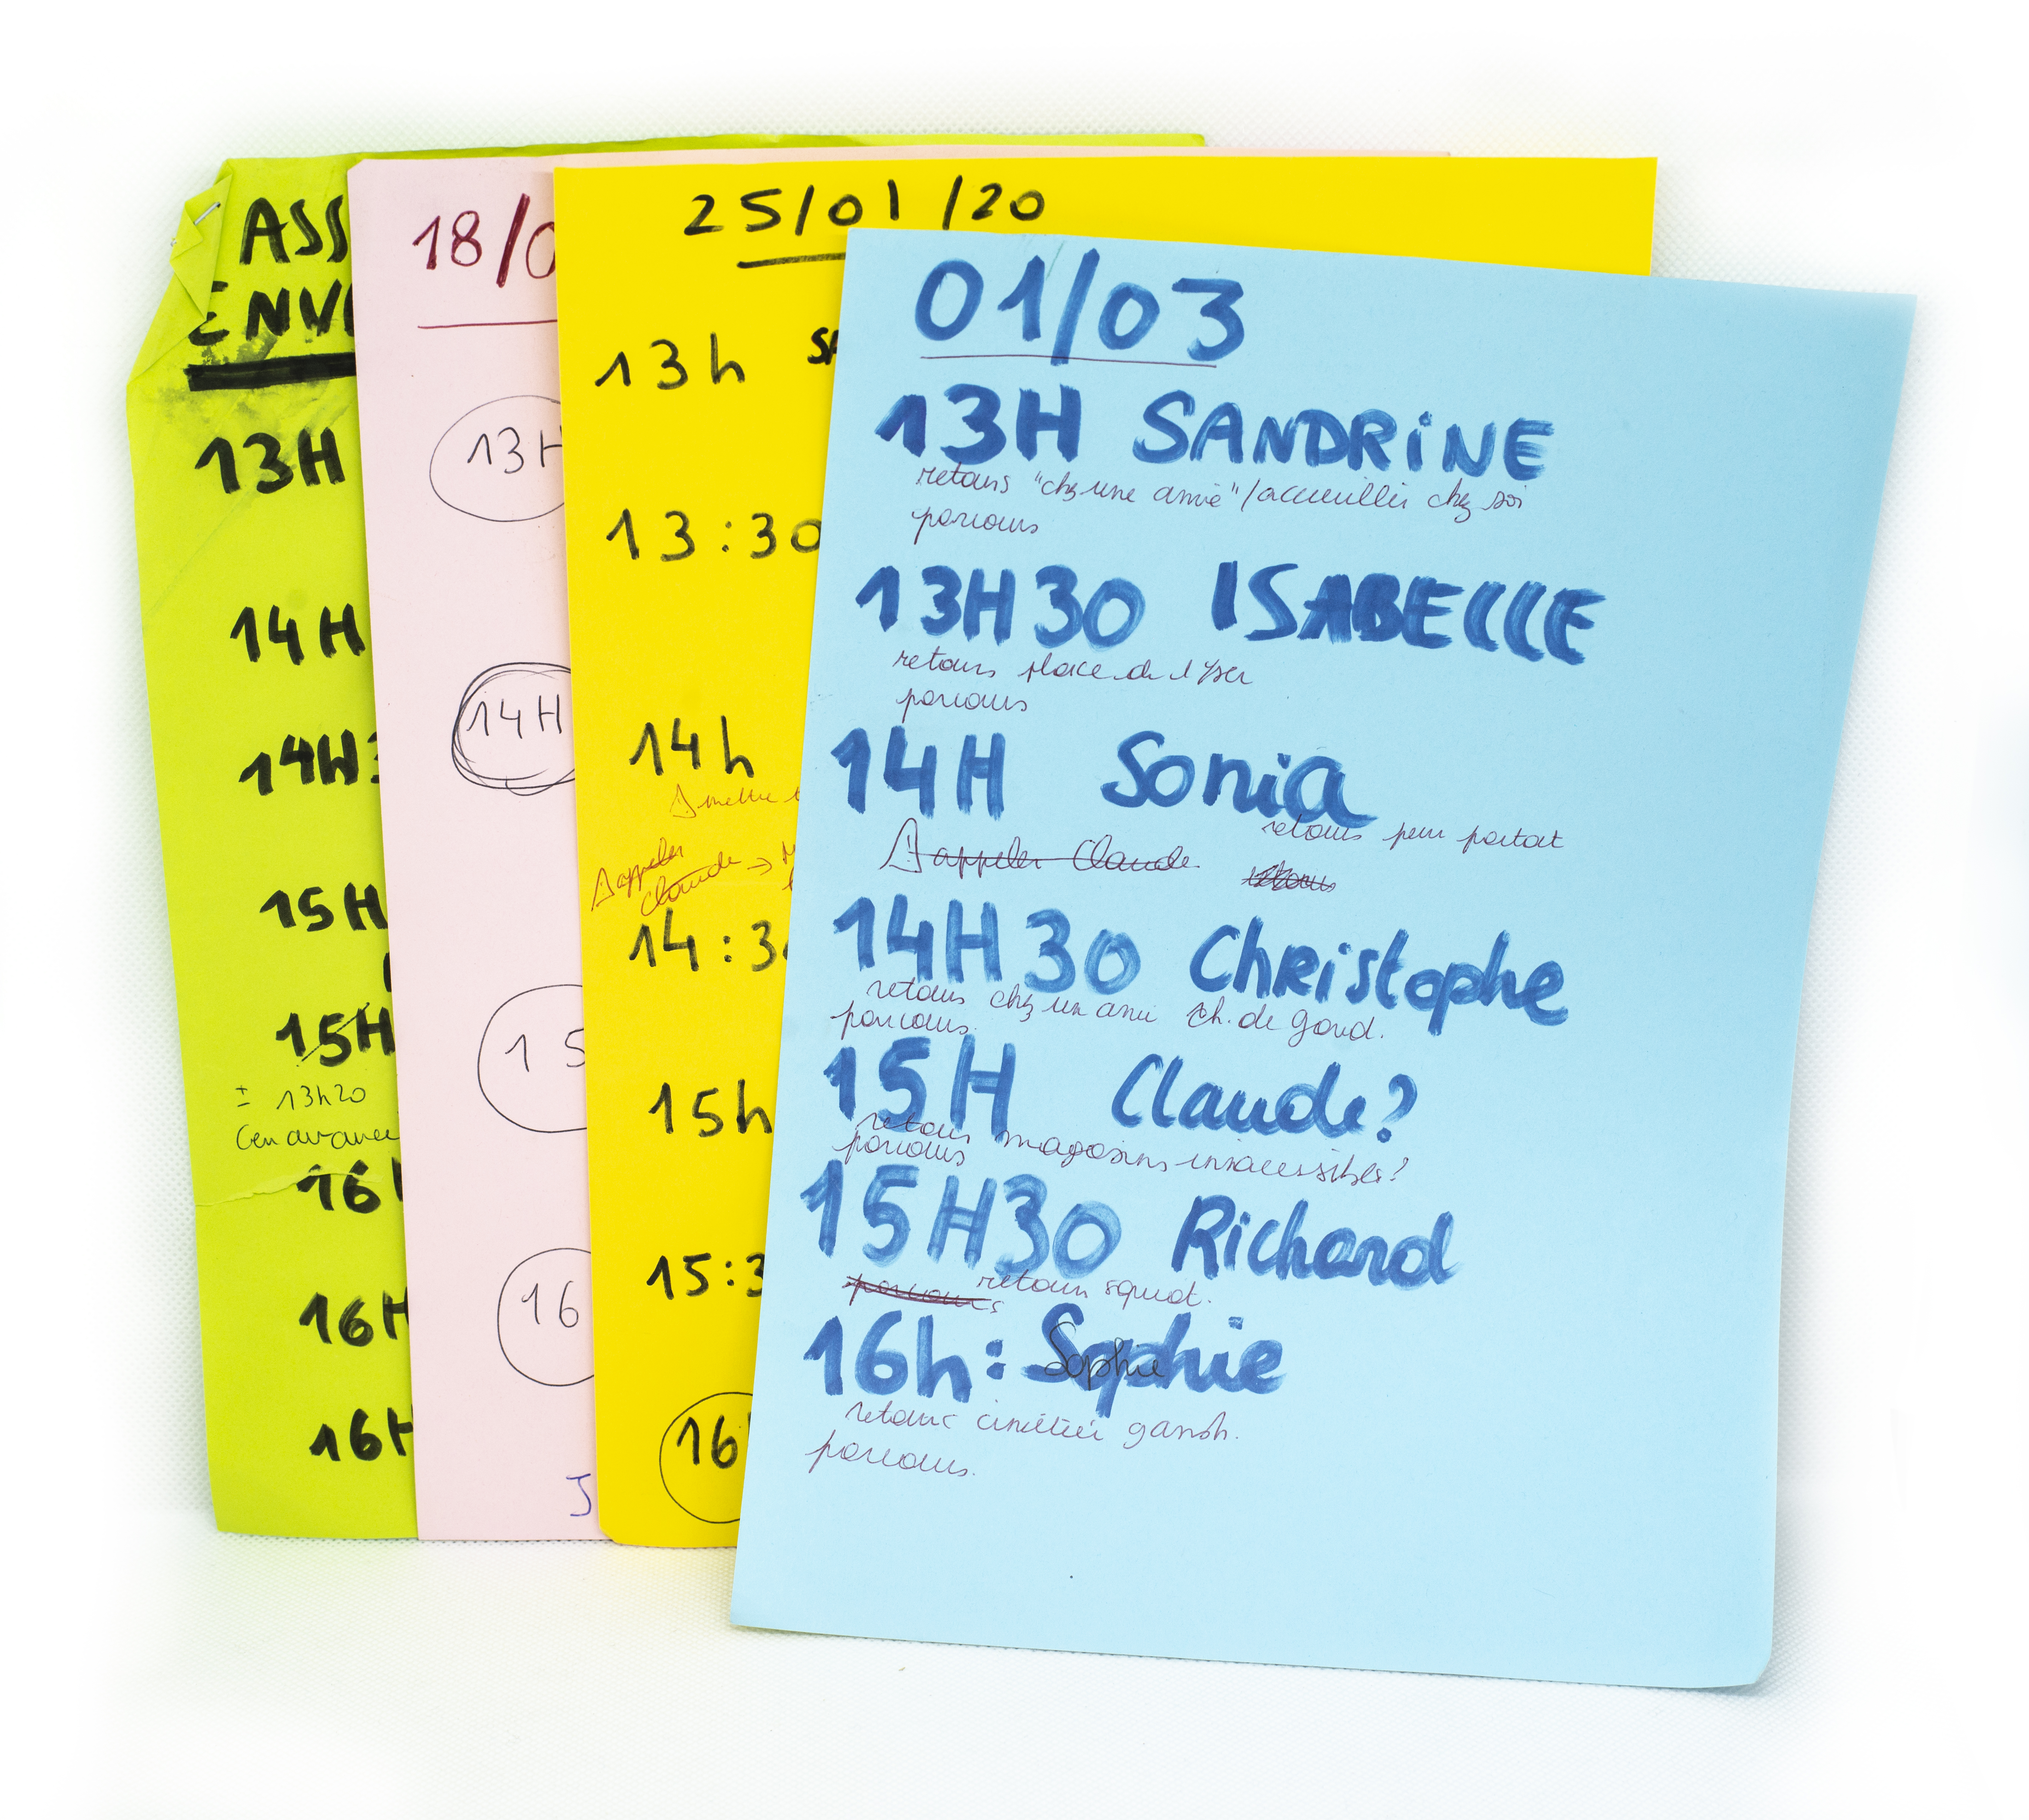 ASS
ENV
13H
14H
14H3
15H
15H
± 13h20
(en avance
16
16H
16H
18/0
13H
14H
15
16
J
25/01/20
13h SA
13:30
14h
à mettre
à appeler
Claude →
14:30
15h
15:3
16
01/03
13H SANDRINE
retours "chez une amie"/accueillir chez soi
parcours
13H30 ISABELLE
retours place de l'Yser
parcours
14H Sonia
retours peur partout
à appeler Claude retours
14H30 Christophe
retours chez un ami Ch. de gand.
parcours.
15H Claude?
retours magasins inaccessibles?
parcours
15H30 Richard
parcours retours squat.
16h: Sophie
Sophie
retours cimetière gansh.
parcours.